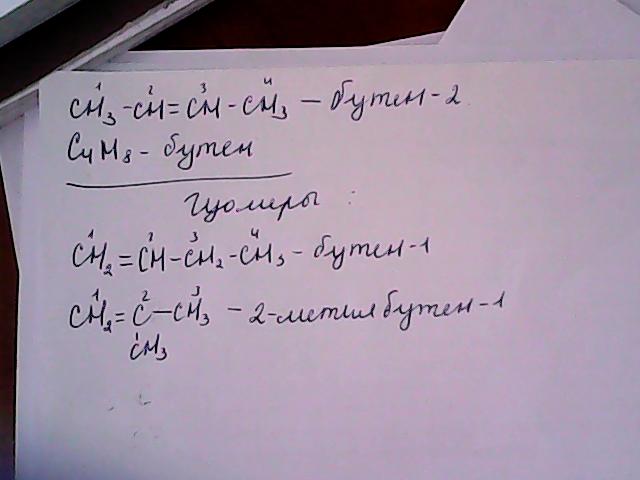 1 2 3 4
CH3-CH=CH-CH3 - бутен-2
C4H8 - бутен
Изомеры:
1 2 3 4
CH2=CH-CH2-CH3 - бутен-1
1 2 3
CH2=C-CH3 - 2-метилбутен-1
CH3